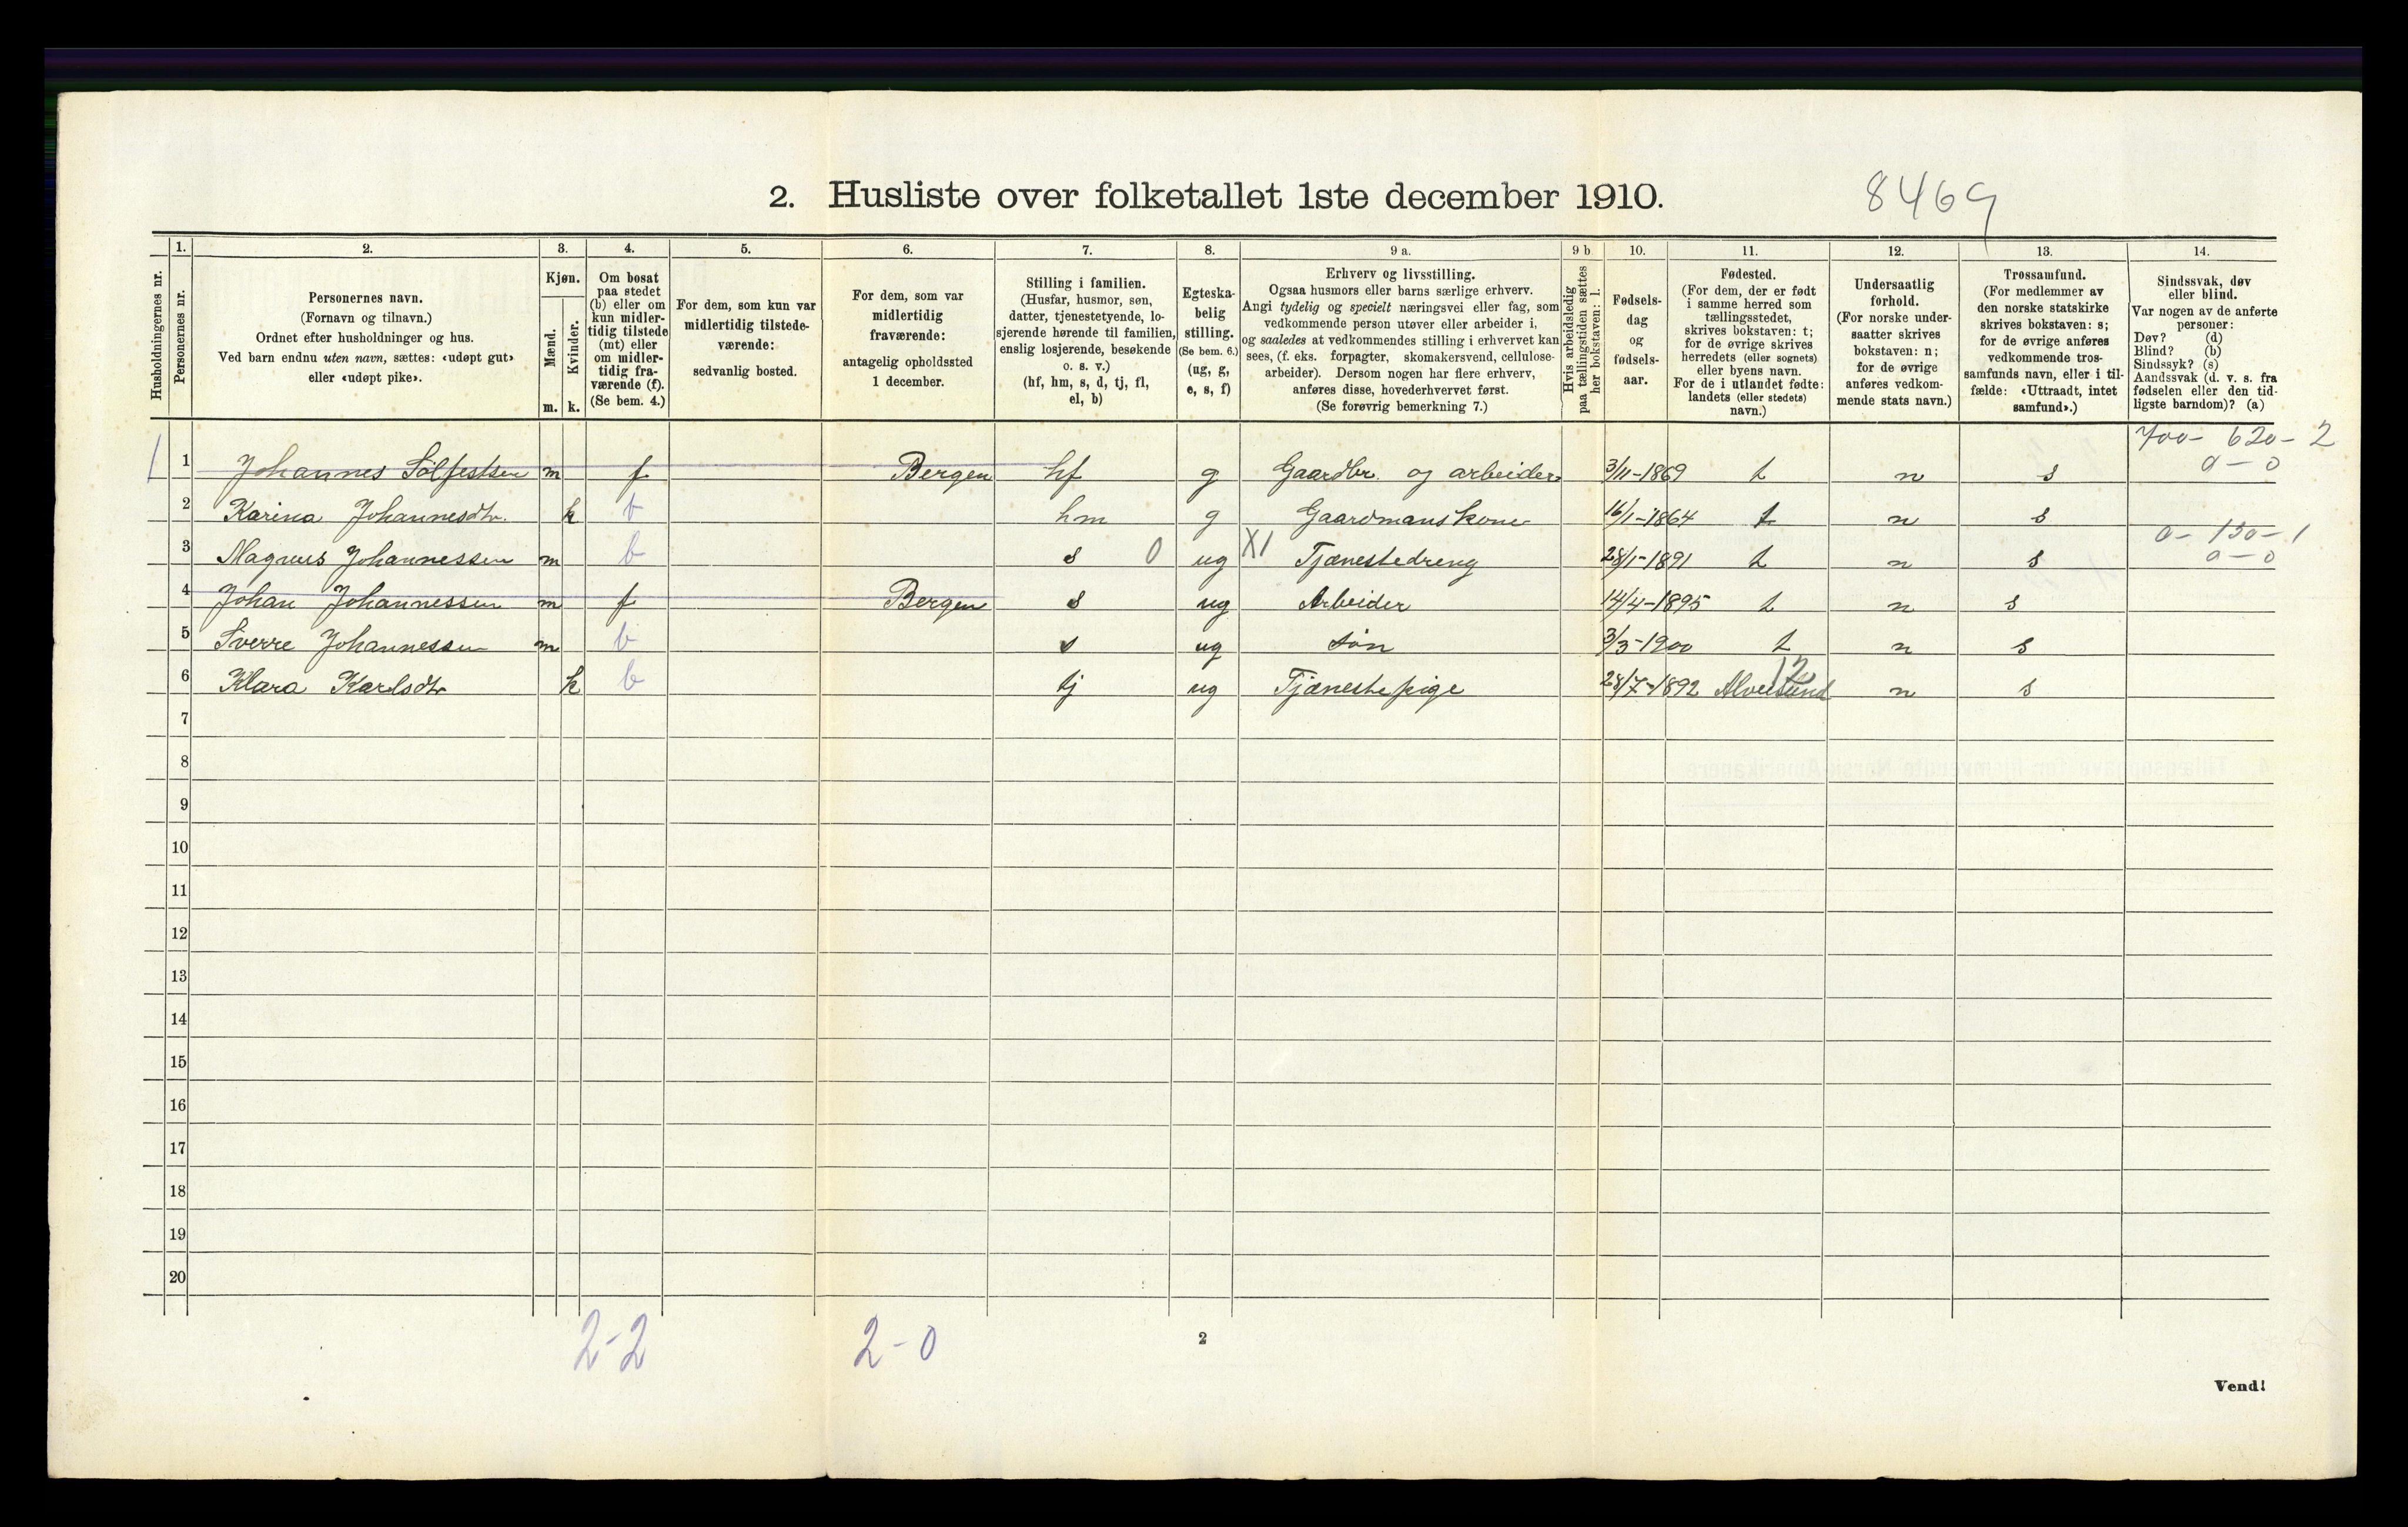 2. Husliste over folketallet 1ste december 1910.
8469
Husholdningernes nr.
1.
Personernes nr.
2.
Personernes navn.
(Fornavn og tilnavn.)
Ordnet efter husholdninger og hus.
Ved barn endnu uten navn, sættes: «udøpt gut»
eller «udøpt pike».
3.
Kjøn.
Mænd.
Kvinder.
m. k.
4.
Om bosat
paa stedet
(b) eller om
kun midler-
tidig tilstede
(mt) eller
om midler-
tidig fra-
værende (f).
(Se bem. 4.)
5.
For dem, som kun var
midlertidig tilstede-
værende:
sedvanlig bosted.
6.
For dem, som var
midlertidig
fraværende:
antagelig opholdssted
1 december.
7.
Stilling i familien.
(Husfar, husmor, søn,
datter, tjenestetyende, lo-
sjerende hørende til familien,
enslig losjerende, besøkende
o. s. v.)
(hf, hm, s, d, tj, fl,
el, b)
8.
Egteska-
belig
stilling.
(Se bem. 6.)
(ug, g,
e, s, f)
9 a.
Erhverv og livsstilling.
Ogsaa husmors eller barns særlige erhverv.
Angi tydelig og specielt næringsvei eller fag, som
vedkommende person utøver eller arbeider i,
og saaledes at vedkommendes stilling i erhvervet kan
sees, (f. eks. forpagter, skomakersvend, cellulose-
arbeider). Dersom nogen har flere erhverv,
anføres disse, hovederhvervet først.
(Se forøvrig bemerkning 7.)
9 b
Hvis arbeidsledig
paa tællingstiden sættes
her bokstaven: l.
10.
Fødsels-
dag
og
fødsels-
aar.
11.
Fødested.
(For dem, der er født
i samme herred som
tællingsstedet,
skrives bokstaven: t;
for de øvrige skrives
herredets (eller sognets)
eller byens navn.
For de i utlandet fødte:
landets (eller stedets)
navn.)
12.
Undersaatlig
forhold.
(For norske under-
saatter skrives
bokstaven: n;
for de øvrige
anføres vedkom-
mende stats navn.)
13.
Trossamfund.
(For medlemmer av
den norske statskirke
skrives bokstaven: s;
for de øvrige anføres
vedkommende tros-
samfunds navn, eller i til-
fælde: «Uttraadt, intet
samfund».)
14.
Sindssvak, døv
eller blind.
Var nogen av de anførte
personer:
Døv? (d)
Blind? (b)
Sindssyk? (s)
Aandssvak (d. v. s. fra
fødselen eller den tid-
ligste barndom)? (a)
700- 620- 2
0-0
1 1 Johannes Solfestsen m f Bergen hf g Gaardbr. og arbeider 3/11-1869 t n s
2 Karina Johannesdtr. k b hm g Gaardmanskone 16/1-1864 t n s
0- 130-1
0-0
3 Magnus Johannessen m b s 0 ug X1 Tjænestedreng 28/1-1891 t n s
4 Johan Johannessen m f Bergen s ug Arbeider 14/4-1895 t n s
5 Sverre Johannessen m b s ug søn 3/3-1900 t n s
12
6 Klara Karlsdtr k b tj ug Tjænestepige 28/7-1892 Alversund n s
7
8
9
10
11
12
13
14
15
16
17
18
19
20
2-2 2-0
2
Vend!